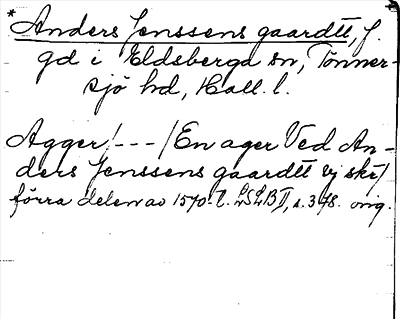 *Anders Jenssens gaardtt, f.
gd i Eldsberga sn, Tönner-
sjö hd, Hall. l.
Agger /---/ En ager Ved An-
ders Jenssens gaardtt vj skr/
förra delen av 1570-t. LSLB II, s. 378. orig.